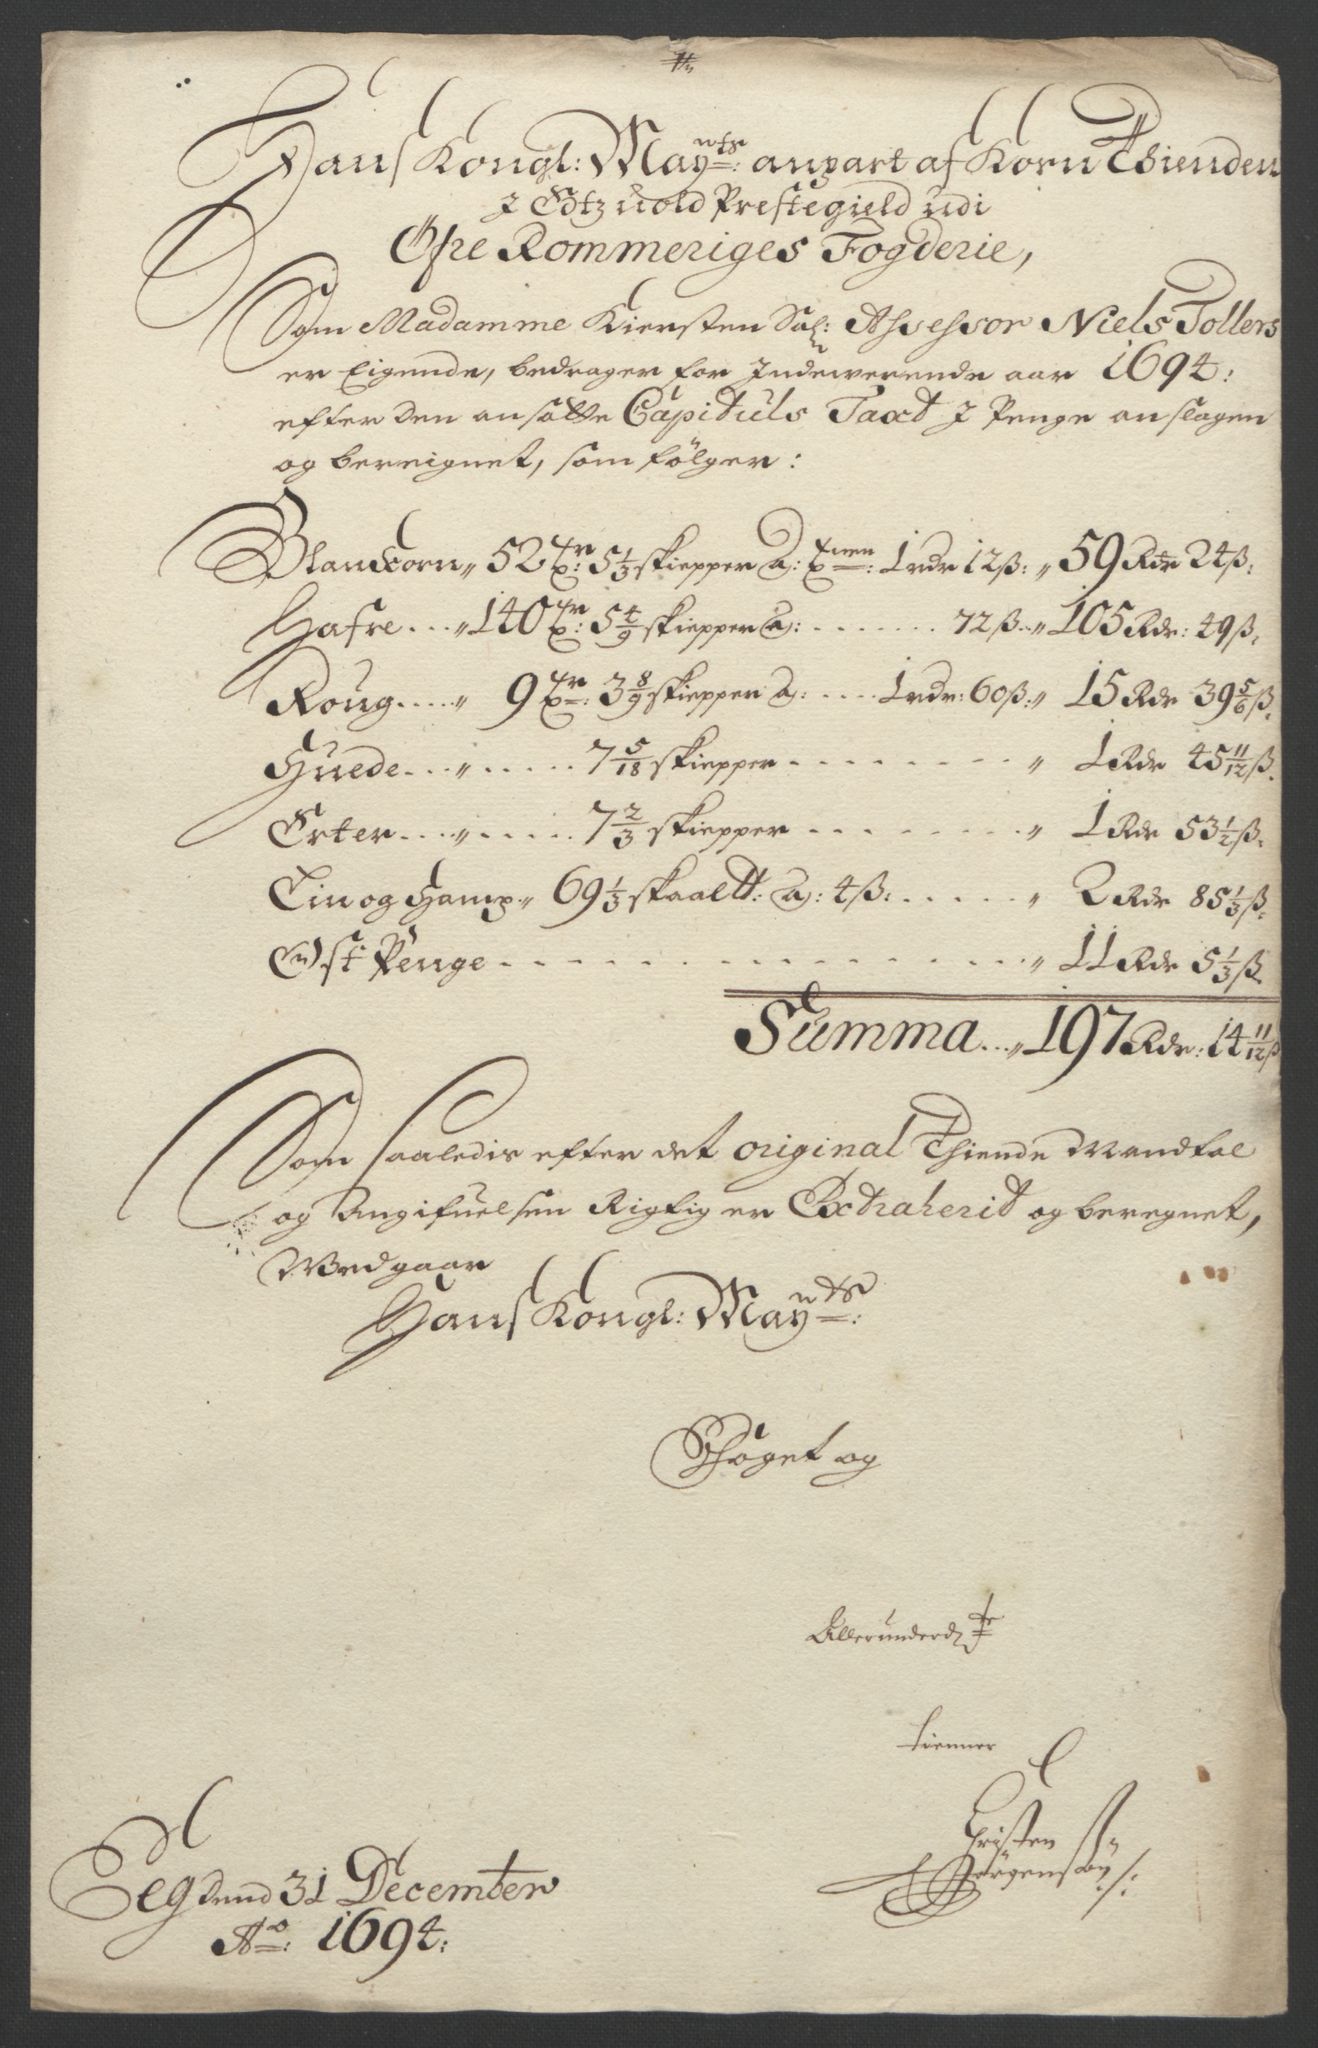 Hans Kongl: Mayts: anpart af Korn Thienden
J Edtzuold Prestegield udi
Øfre Rommeriges Fogderie,
Som Madamme Kiersten Sal: Assessor Niels Tollers
er Eigende, bedrager for Indewerende aar 1694:
efter den ansatte Capituls Taxt J Penge anslagen
og bereignet, som følger:
Blandkorn „ 52 Tr: 5 1/3 skiepper a: Tnen: 1 rdr 12 ß: „ 59 Rdr 24 ß:
Hafre .... „ 140 Tr: 5 4/9 skiepper a: ....... 72 ß .. „ 105 Rdr: 49 ß,
Roug ..... „ 9 Tr: 3 8/9 skiepper a: ..... 1 rdr: 60 ß: „ 15 Rdr 39 5/6 ß,
Huede ... „ ...... 7 5/18 skiepper - - - - - - - - „ 1 Rdr 45 11/12 ß.
Erter .... „ ...... 7 2/3 skiepper - - - - - - - - „ 1 Rdr 53 1/2 ß.
Lin og Hamp „ 69 1/3 skaaltt: a: 4 ß: ...... „ 2 Rdr 85 1/3 ß,
Ost Penge - - - - - - - - - - - - - - „ 11 Rdr 5 1/3 ß
Summa ... „ 197 Rdr: 14 11/12 ß
Som saaledis efter det original Thiende Mandtal
og Angifuelsen Rigtig er Extraherit og beregnet,
Wedgaar
Hans Kongl: Mayts:
Foget og
Allerunderd
tienner
Christen
Jörgensøn
Eeg dend 31 December
Ao: 1694: